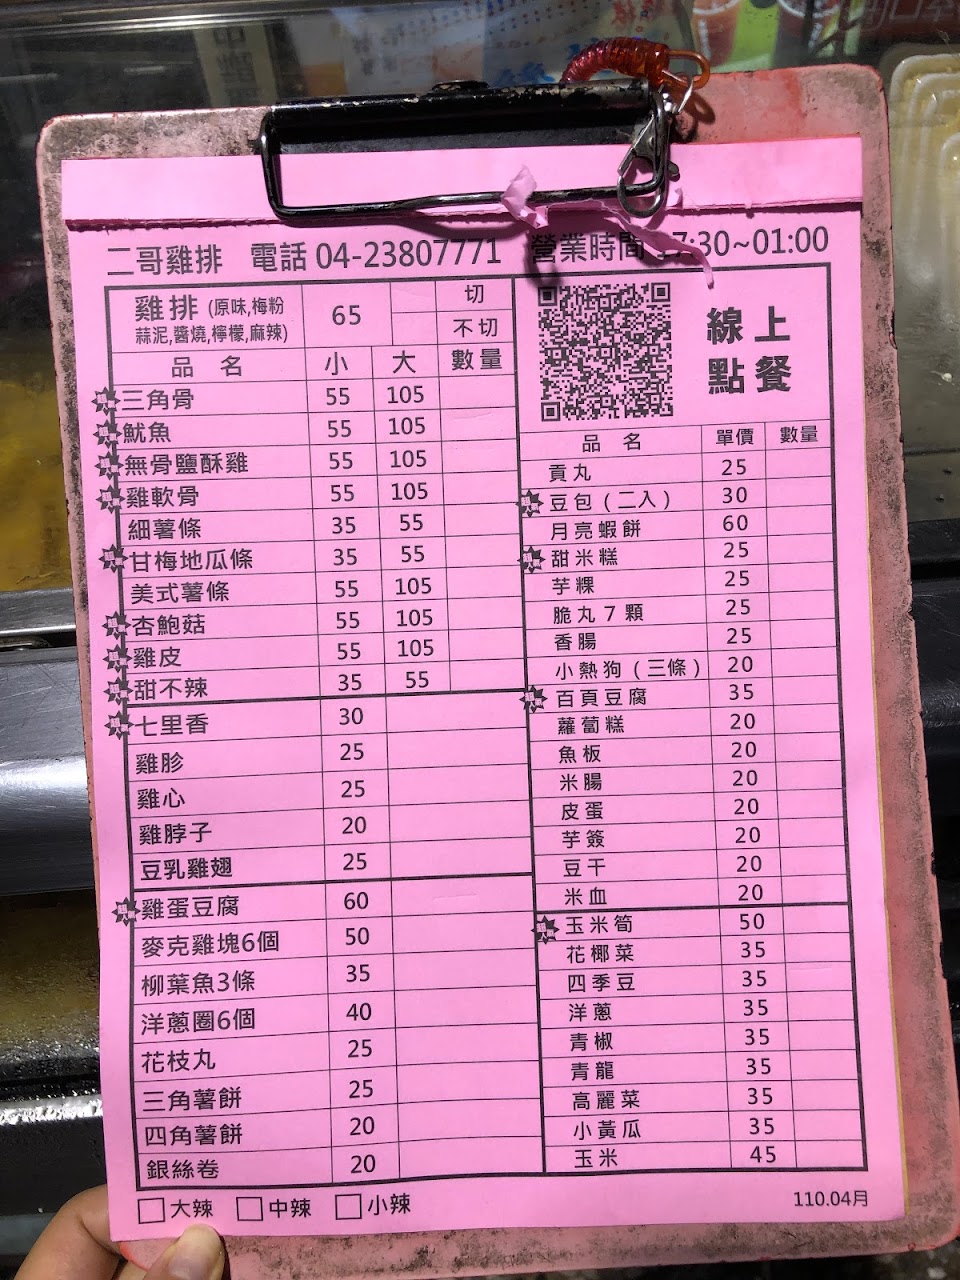 二哥雞排 電話 04-23807771 營業時間 17:30~01:00
雞排 (原味,梅粉 65 切
蒜泥,醬燒,檸檬,麻辣) 不切
品名 小 大 數量
三角骨 55 105
魷魚 55 105
無骨鹽酥雞 55 105
雞軟骨 55 105
細薯條 35 55
甘梅地瓜條 35 55
美式薯條 55 105
杏鮑菇 55 105
雞皮 55 105
甜不辣 35 55
七里香 30
雞胗 25
雞心 25
雞脖子 20
豆乳雞翅 25
雞蛋豆腐 60
麥克雞塊6個 50
柳葉魚3條 35
洋蔥圈6個 40
花枝丸 25
三角薯餅 25
四角薯餅 20
銀絲卷 20
大辣 中辣 小辣
線上
點餐
品名 單價 數量
貢丸 25
豆包(二入) 30
月亮蝦餅 60
甜米糕 25
芋粿 25
脆丸7顆 25
香腸 25
小熱狗(三條) 20
百頁豆腐 35
蘿蔔糕 20
魚板 20
米腸 20
皮蛋 20
芋簽 20
豆干 20
米血 20
玉米筍 50
花椰菜 35
四季豆 35
洋蔥 35
青椒 35
青龍 35
高麗菜 35
小黃瓜 35
玉米 45
110.04月